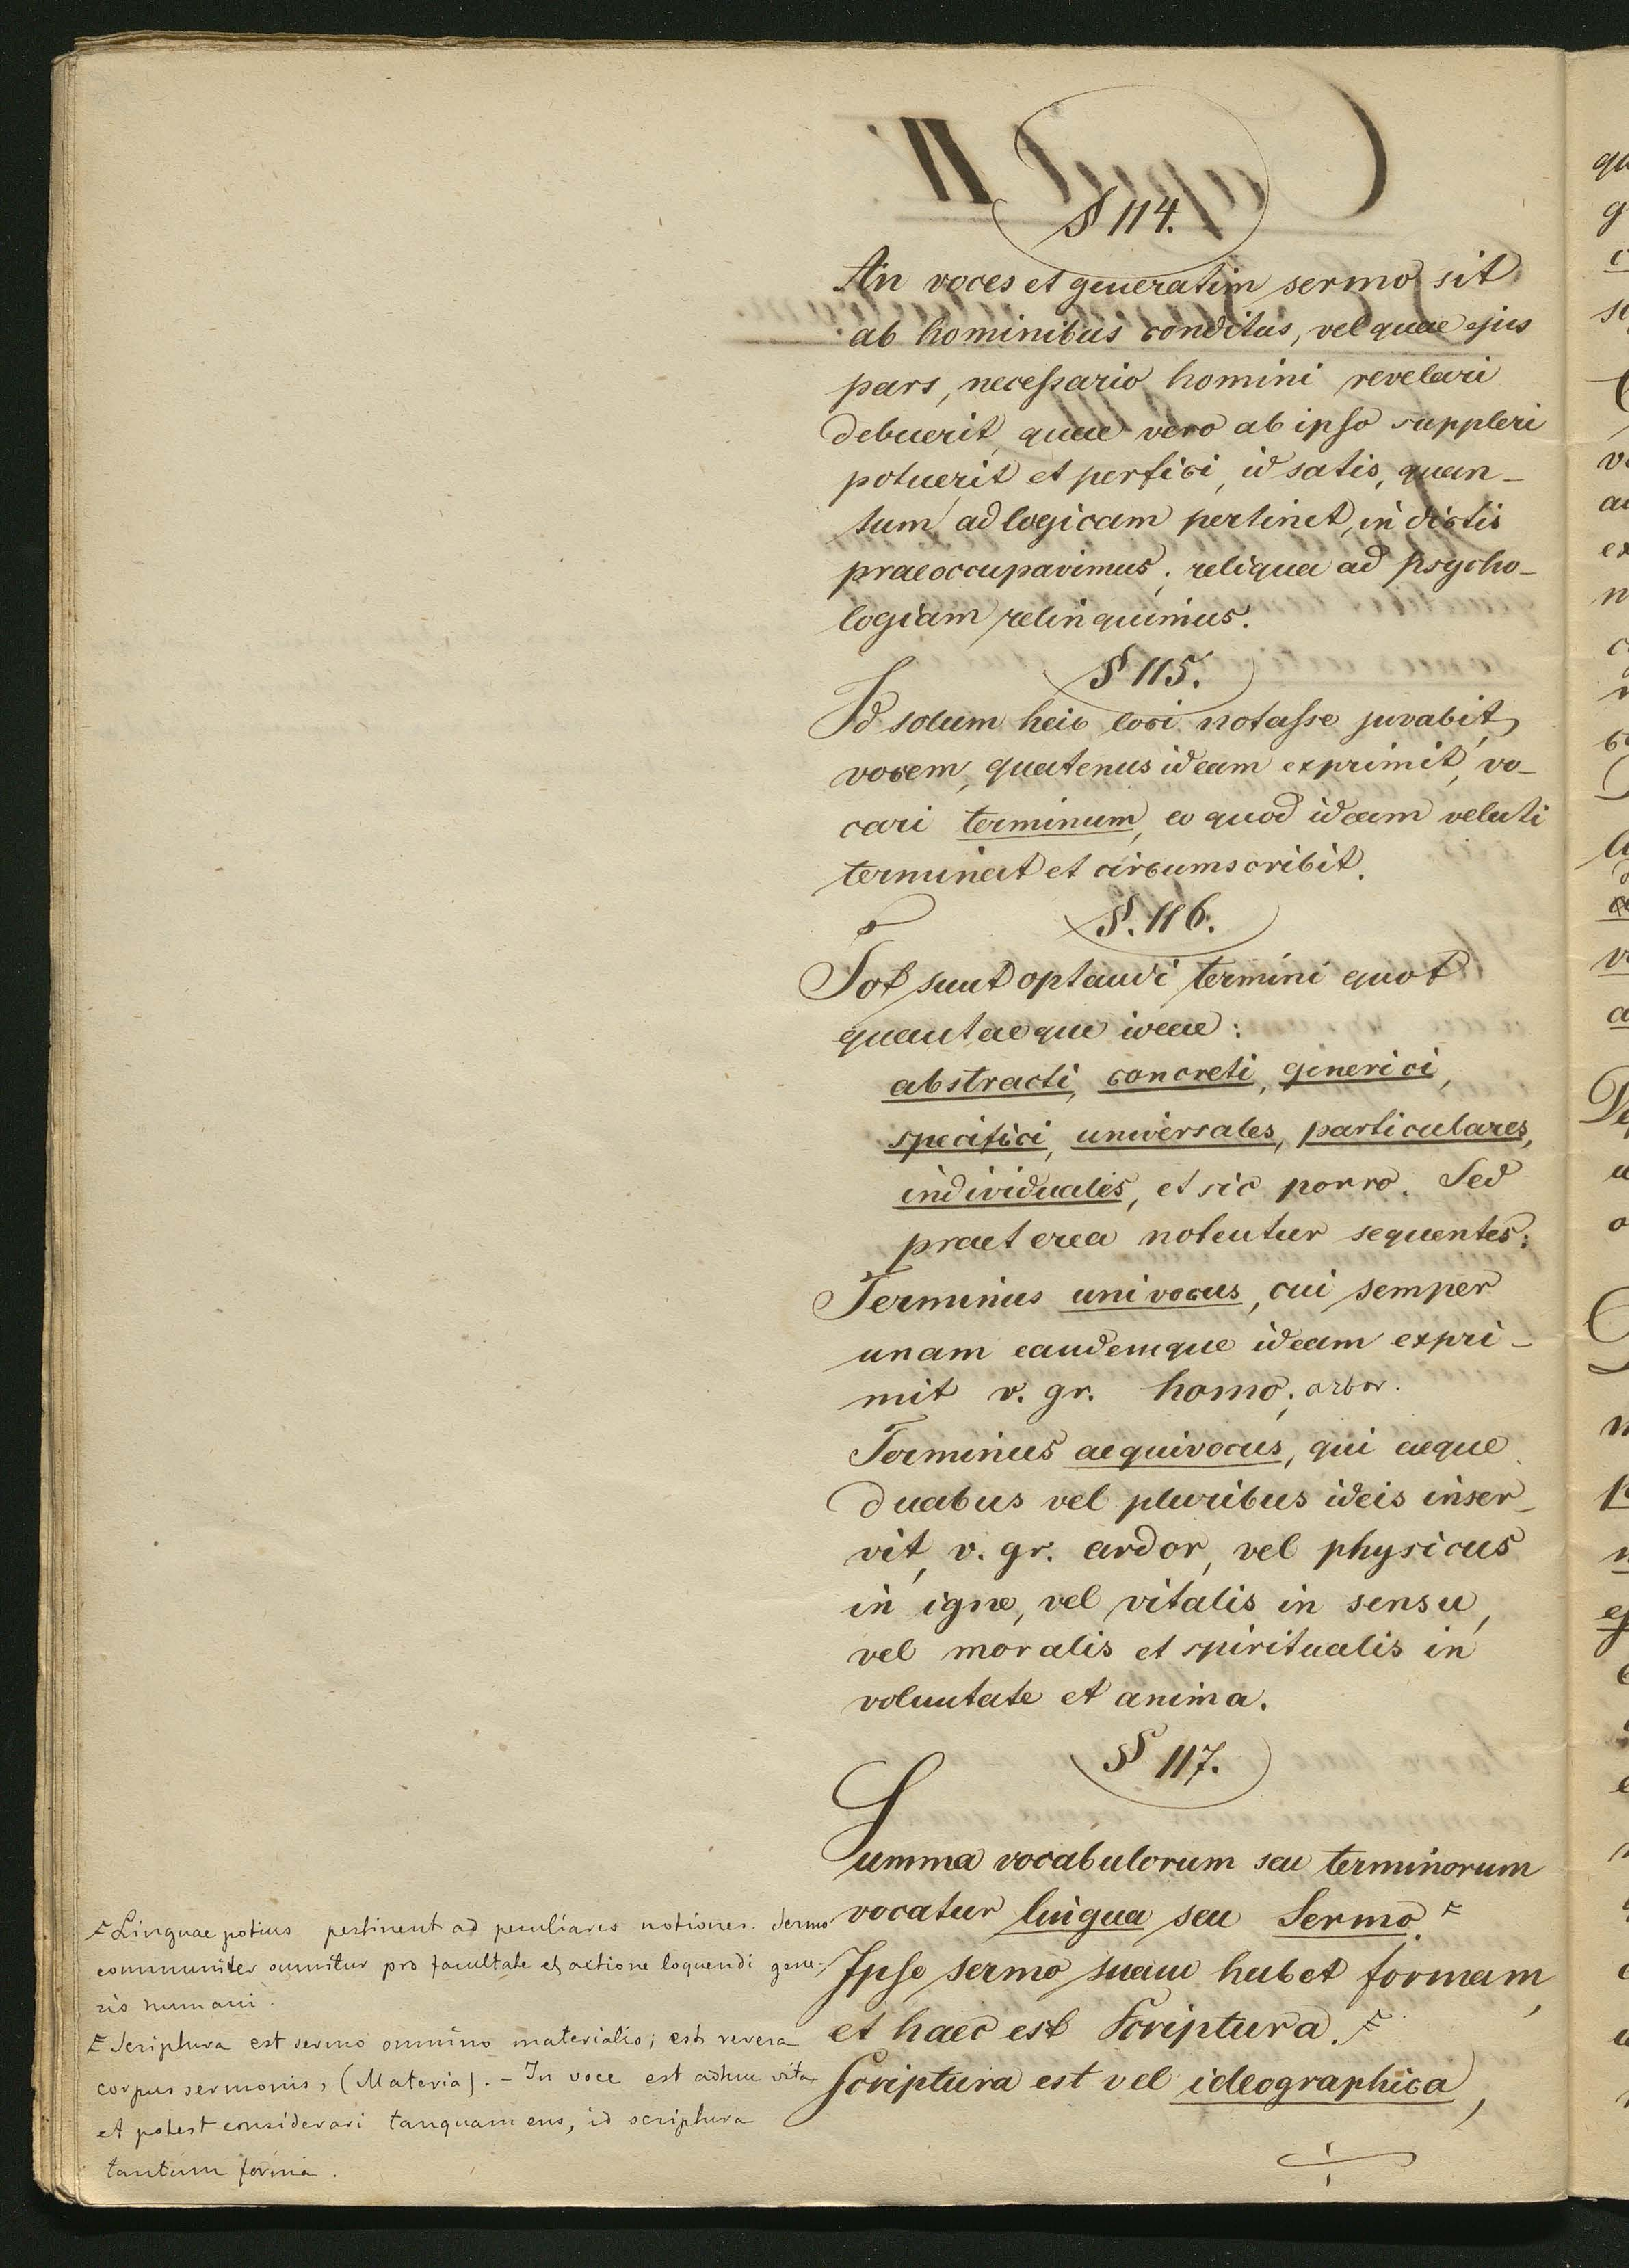 § 114.
An voces et generatim sermo sit
ab hominibus conditus, vel quae ejus
pars, necessario homini revelari
debuerit, quae vero ab ipso suppleri
potuerit et perfici, id satis, quan-
tum ad logicam pertinet, in dictis
praeoccupavimus; reliqua ad psycho-
logiam relinquimus.
§ 115.
Id solum heic loci notasse juvabit,
vocem, quatenus ideam exprimit, vo-
cari terminum, eo quod ideam veluti
terminat et circumscribit.
§. 116.
Tot sunt optandi termini quot
quantaeque ideae:
abstracti, concreti, generici,
specifici, universales, particulares,
individuales, et sic porro. Sed
praeterea notentur sequentes:
Terminus univocus, cui semper
unam eandemque ideam expri-
mit v. gr. homo; arbor.
Terminus aequivocus, qui aeque
duabus vel pluribus ideis inser-
vit, v. gr. ardor, vel physicus
in igne, vel vitalis in sensu,
vel moralis et spiritualis in
voluntate et anima.
§ 117.
Summa vocabulorum seu terminorum
vocatur lingua seu Sermo.
Ipse sermo suam habet formam,
et haec est Scriptura.
Scriptura est vel ideographica,
Linguae potius pertinent ad peculiares notiones. Sermo
communiter sumitur pro facultate et actione loquendi gene-
ris humani.
Scriptura est sermo omnino materialis; est revera
corpus sermonis, (Materia). - In voce est adhuc vita
et potest considerari tanquam ens, id scriptura
tantum forma.